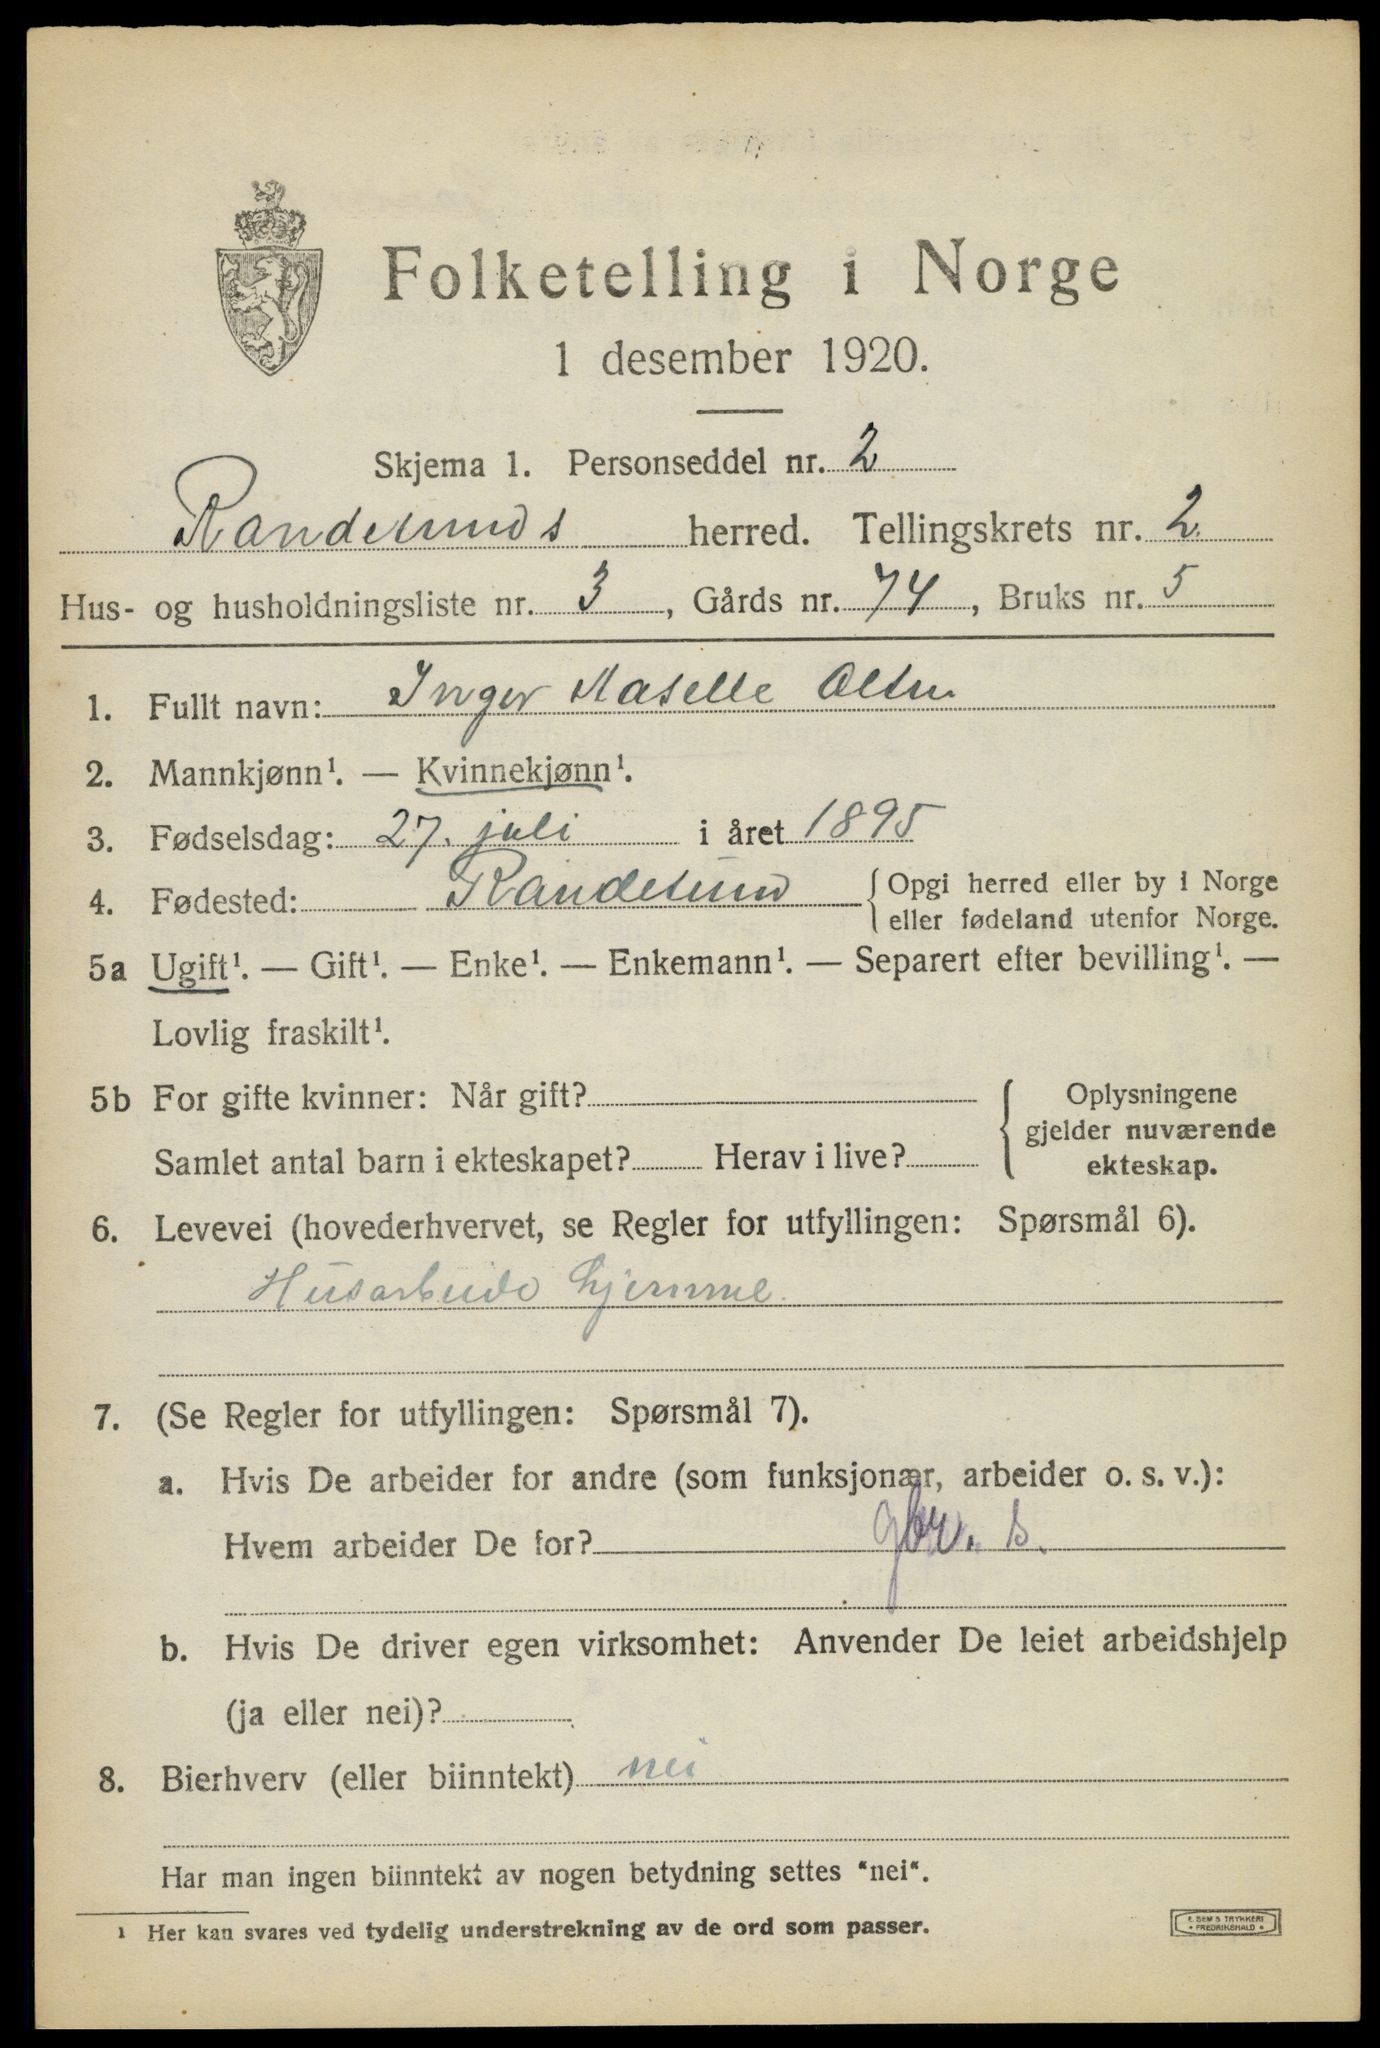 Folketelling i Norge
1 desember 1920.
Skjema 1. Personseddel nr. 2
Randesunds herred. Tellingskrets nr. 2.
Hus- og husholdningsliste nr. 3, Gårds nr. 74, Bruks nr. 5
1. Fullt navn: Inger Maselle Olsen
2. Mannkjønn¹. — Kvinnekjønn¹.
3. Fødselsdag: 27. juli i året 1895
4. Fødested: Randesund {Opgi herred eller by i Norge
eller fødeland utenfor Norge.
5a Ugift¹. — Gift¹. — Enke¹. — Enkemann¹. — Separert efter bevilling¹. —
Lovlig fraskilt¹.
5b For gifte kvinner: Når gift? {Oplysningene
gjelder nuværende
Samlet antal barn i ekteskapet? Herav i live? ekteskap.
6. Levevei (hovederhvervet, se Regler for utfyllingen: Spørsmål 6).
Husarbeide hjemme.
7. (Se Regler for utfyllingen: Spørsmål 7).
a. Hvis De arbeider for andre (som funksjonær, arbeider o. s. v.):
Hvem arbeider De for? gbr. s.
b. Hvis De driver egen virksomhet: Anvender De leiet arbeidshjelp
(ja eller nei)?
8. Bierhverv (eller biinntekt) nei
Har man ingen biinntekt av nogen betydning settes “nei“.
¹ Her kan svares ved tydelig understrekning av de ord som passer.
E. SEM'S TRYKKERI
• FREDRIKSHALD •